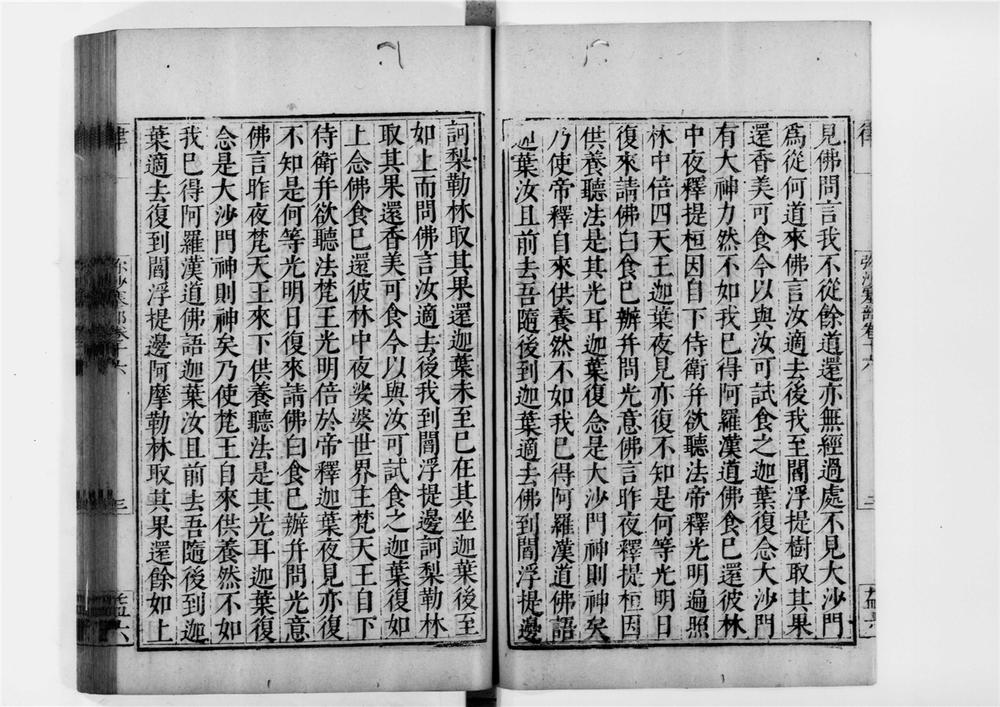 見佛問言我不從餘道還亦無經過處不見大沙門
為從何道來佛言汝適去後我至閻浮提樹取其果
還香美可食今以與汝可試食之迦葉復念大沙門
有大神力然不如我已得阿羅漢道佛食已還彼林
中夜釋提桓因自下侍衛并欲聽法帝釋光明遍照
林中倍四天王迦葉夜見亦復不知是何等光明日
復來請佛白食已辦并問光意佛言昨夜釋提桓因
供養聽法是其光耳迦葉復念是大沙門神則神矣
乃使帝釋自來供養然不如我已得阿羅漢道佛語
迦葉汝且前去吾隨後到迦葉適去佛到閻浮提邊
訶梨勒林取其果還迦葉未至已在其坐迦葉後至
如上而問佛言汝適去後我到閻浮提邊訶梨勒林
取其果還香美可食今以與汝可試食之迦葉復如
上念佛食已還彼林中夜娑婆世界主梵天王自下
侍衛并欲聽法梵王光明倍於帝釋迦葉夜見亦復
不知是何等光明日復來請佛白食已辦并問光意
佛言昨夜梵天王來下供養聽法是其光耳迦葉復
念是大沙門神則神矣乃使梵王自來供養然不如
我已得阿羅漢道佛語迦葉汝且前去吾隨後到迦
葉適去復到閻浮提邊阿摩勒林取其果還餘如上
律 弥沙塞部卷十六 三 益六